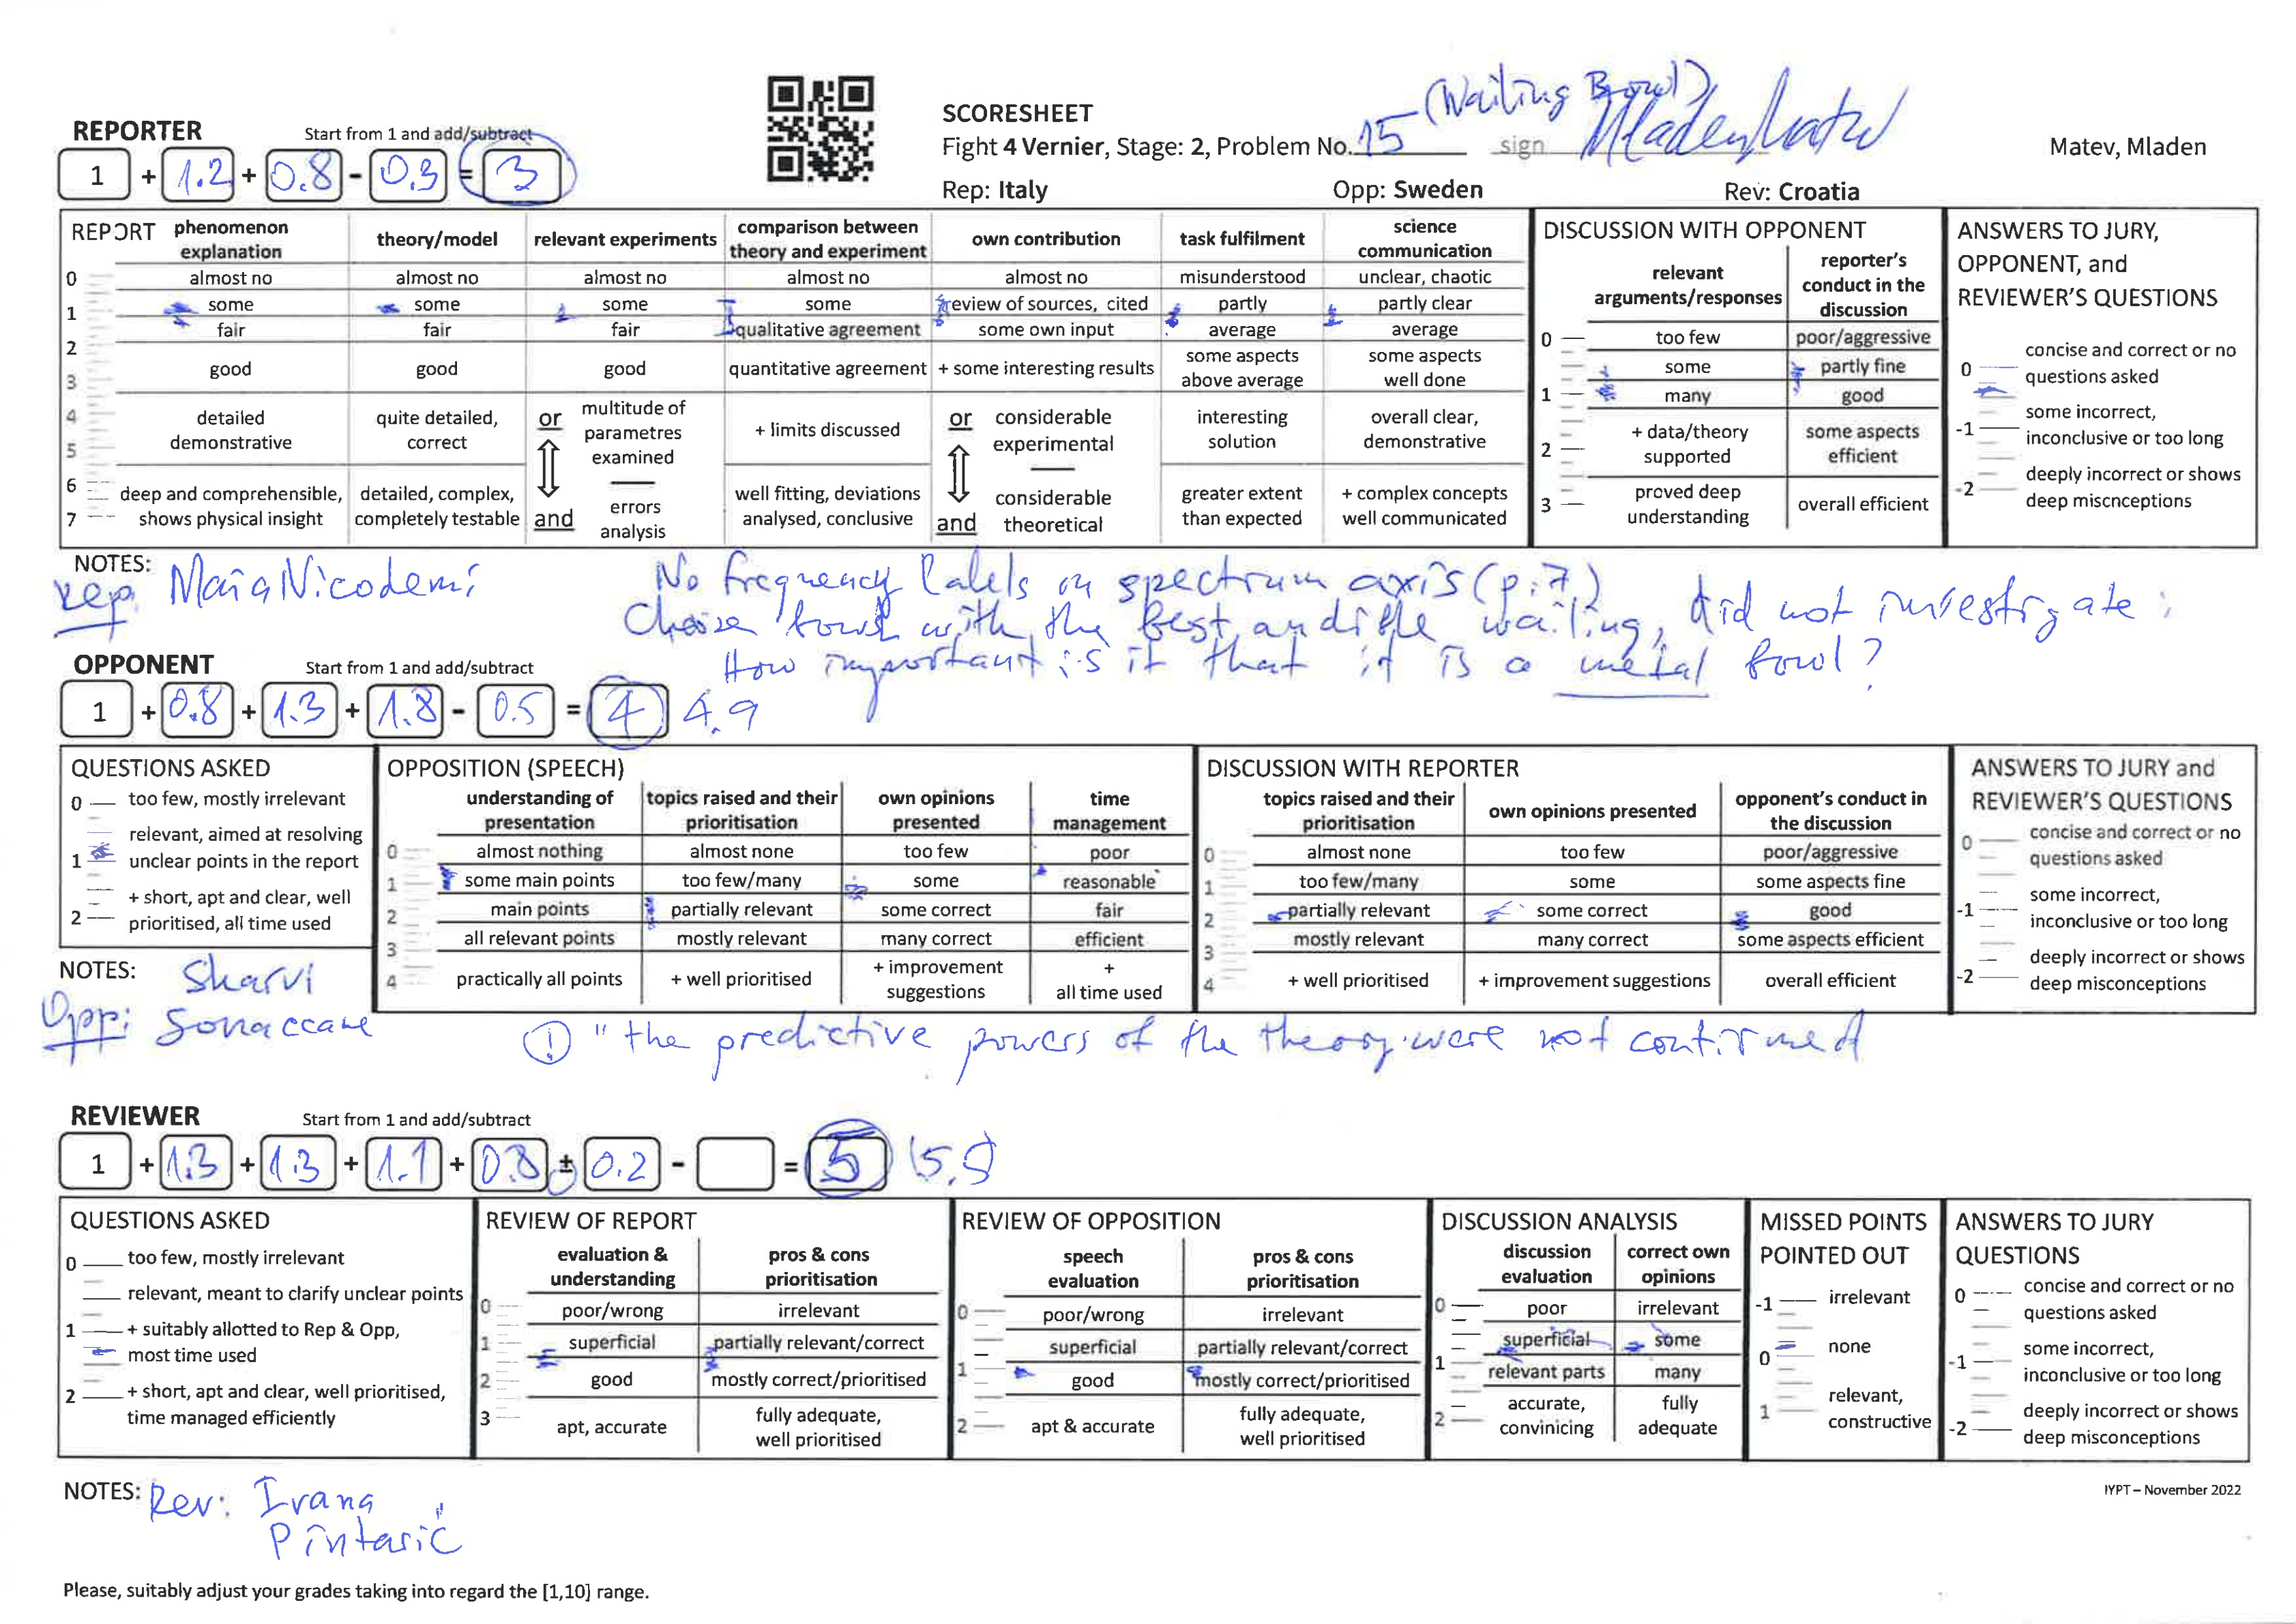 SCORESHEET
Fight 4 Vernier, Stage: 2, Problem No. 15 (Wailing Bowl)
sign
Matev, Mladen
Rep: Italy Opp: Sweden Rev: Croatia
REPORTER Start from 1 and add/subtract
1 + 1.2 + 0.8 - 0.3 = 3
REPORT
phenomenon explanation
theory/model
relevant experiments
comparison between theory and experiment
own contribution
task fulfilment
science communication
0 almost no almost no almost no almost no almost no misunderstood unclear, chaotic
1 some some some some review of sources, cited partly partly clear
fair fair fair qualitative agreement some own input average average
2
3 good good good quantitative agreement + some interesting results some aspects above average some aspects well done
4 5 detailed demonstrative quite detailed, correct or multitude of parametres examined + limits discussed or considerable experimental interesting solution overall clear, demonstrative
6 7 deep and comprehensible, shows physical insight detailed, complex, completely testable and errors analysis well fitting, deviations analysed, conclusive and considerable theoretical greater extent than expected + complex concepts well communicated
DISCUSSION WITH OPPONENT
relevant arguments/responses reporter's conduct in the discussion
0 too few poor/aggressive
some partly fine
1 many good
2 + data/theory supported some aspects efficient
3 proved deep understanding overall efficient
ANSWERS TO JURY, OPPONENT, and REVIEWER'S QUESTIONS
0 concise and correct or no questions asked
-1 some incorrect, inconclusive or too long
-2 deeply incorrect or shows deep miscnceptions
NOTES:
rep Maia Nicodemi
No frequency labels on spectrum axis (p.7)
Choise bowl with the best audible wailing, did not investigate:
How important is it that it is a metal bowl?
OPPONENT Start from 1 and add/subtract
1 + 0.8 + 1.3 + 1.8 - 0.5 = 4 4.9
QUESTIONS ASKED
0 too few, mostly irrelevant
relevant, aimed at resolving
1 unclear points in the report
+ short, apt and clear, well
2 prioritised, all time used
OPPOSITION (SPEECH)
understanding of presentation topics raised and their prioritisation own opinions presented time management
0 almost nothing almost none too few poor
1 some main points too few/many some reasonable
2 main points partially relevant some correct fair
3 all relevant points mostly relevant many correct efficient
4 practically all points + well prioritised + improvement suggestions + all time used
DISCUSSION WITH REPORTER
topics raised and their prioritisation own opinions presented opponent's conduct in the discussion
0 almost none too few poor/aggressive
1 too few/many some some aspects fine
2 partially relevant some correct good
3 mostly relevant many correct some aspects efficient
4 + well prioritised + improvement suggestions overall efficient
ANSWERS TO JURY and REVIEWER'S QUESTIONS
0 concise and correct or no questions asked
-1 some incorrect, inconclusive or too long
-2 deeply incorrect or shows deep misconceptions
NOTES: Sharvi
Opp:
① "the predictive powers of the theory were not confirmed
REVIEWER Start from 1 and add/subtract
1 + 1.3 + 1.3 + 1.1 + 0.8 ± 0.2 - = 5 (5,
QUESTIONS ASKED
0 too few, mostly irrelevant
relevant, meant to clarify unclear points
1 + suitably allotted to Rep & Opp,
most time used
2 + short, apt and clear, well prioritised,
time managed efficiently
REVIEW OF REPORT
evaluation & understanding pros & cons prioritisation
0 poor/wrong irrelevant
1 superficial partially relevant/correct
2 good mostly correct/prioritised
3 apt, accurate fully adequate, well prioritised
REVIEW OF OPPOSITION
speech evaluation pros & cons prioritisation
0 poor/wrong irrelevant
superficial partially relevant/correct
1 good mostly correct/prioritised
2 apt & accurate fully adequate, well prioritised
DISCUSSION ANALYSIS
discussion evaluation correct own opinions
0 poor irrelevant
superficial some
1 relevant parts many
2 accurate, convinicing fully adequate
MISSED POINTS POINTED OUT
-1 irrelevant
0 none
1 relevant, constructive
ANSWERS TO JURY QUESTIONS
0 concise and correct or no questions asked
-1 some incorrect, inconclusive or too long
-2 deeply incorrect or shows deep misconceptions
NOTES: Rev: Ivana
Pintarić
IYPT – November 2022
Please, suitably adjust your grades taking into regard the [1,10] range.